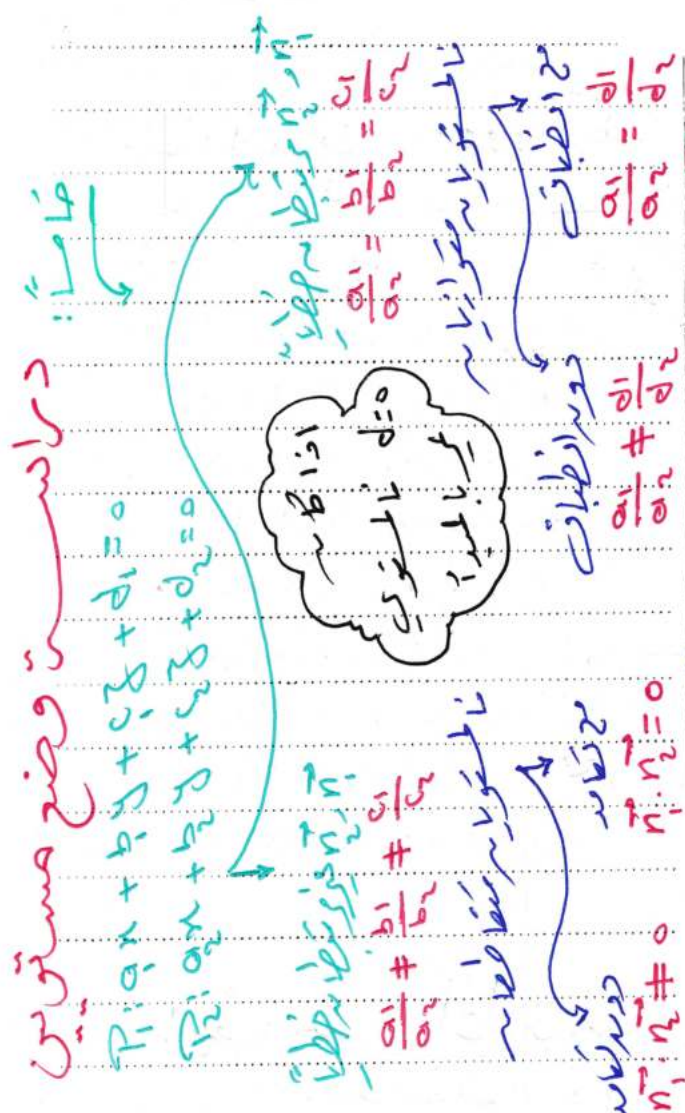 دراسة وضع مستويين
خاصة:
P₁: a₁x + b₁y + c₁z + d₁ = 0
P₂: a₂x + b₂y + c₂z + d₂ = 0
n⃗₁, n⃗₂ مرتبطين خطياً
a₁/a₂ = b₁/b₂ = c₁/c₂
المستويان متوازيان
مع انطباق
a₁/a₂ = d₁/d₂
دون انطباق
a₁/a₂ ≠ d₁/d₂
إذا كان
d=0
المستوي
يمر بالمبدأ
n⃗₁, n⃗₂ غير مرتبطين خطياً
a₁/a₂ ≠ b₁/b₂ ≠ c₁/c₂
المستويان متقاطعان
مع تعامد
n⃗₁ . n⃗₂ = 0
دون تعامد
n⃗₁ . n⃗₂ ≠ 0